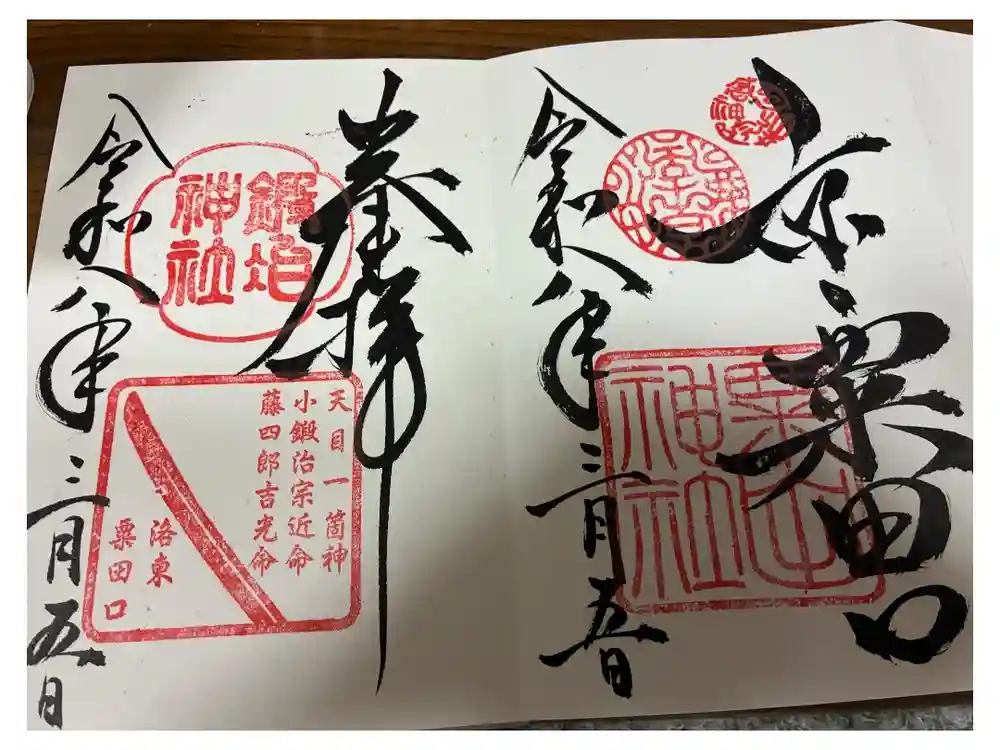 京 粟田口
粟田神社
令和八年三月五日
奉拝
鍛冶神社
天目一箇神
小鍛治宗近命
藤四郎吉光命
洛東
粟田口
令和八年三月五日